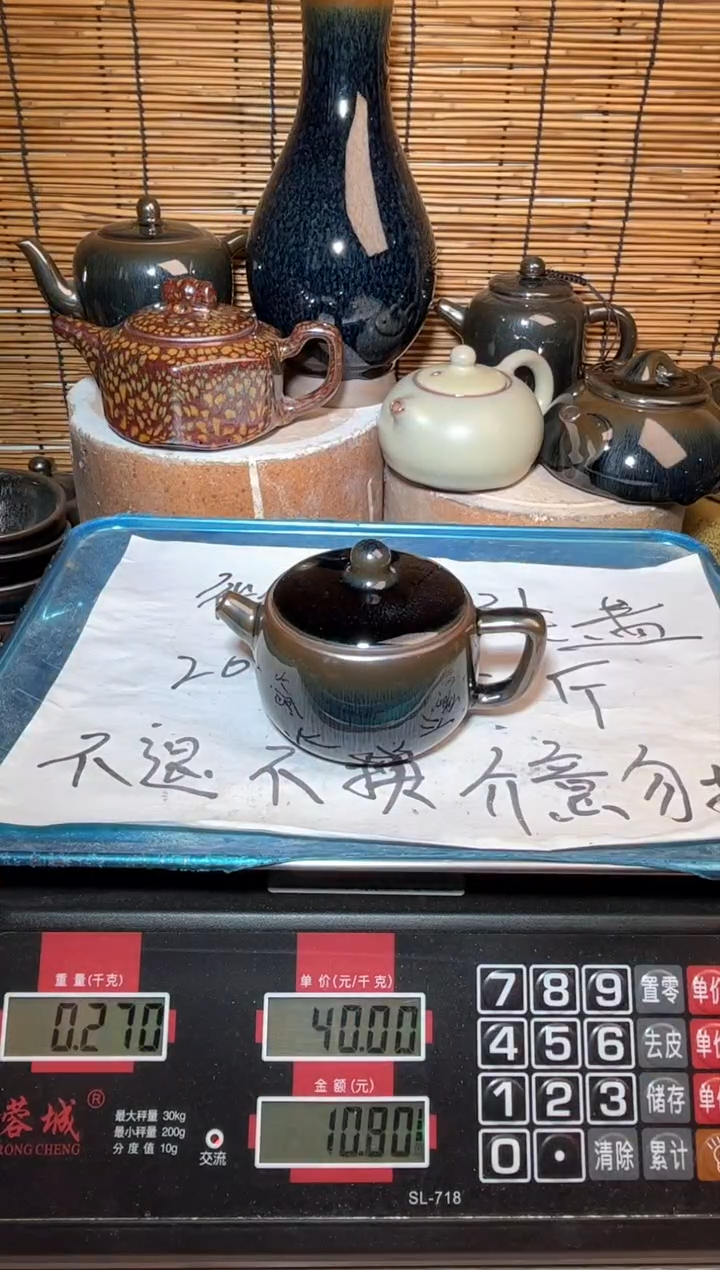 20
斤
不退不换介意勿拍
重量(千克)
单价(元/千克)
0.270
40.00
金额(元)
10.80
蓉城®
RONG CHENG
最大秤量 30kg
最小秤量 200g
分度值 10g
交流
SL-718
7 8 9 置零 单价
4 5 6 去皮 单价
1 2 3 储存 单价
0 · 清除 累计